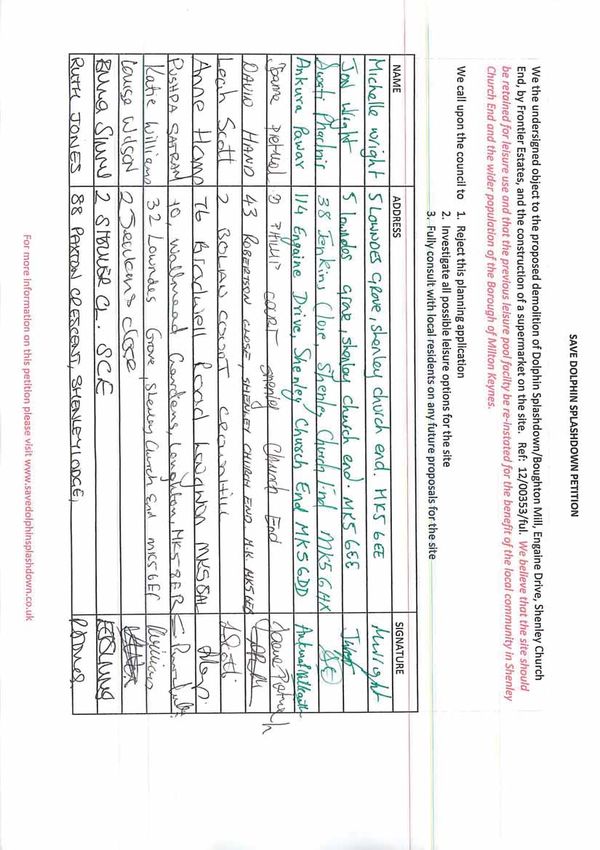 SAVE DOLPHIN SPLASHDOWN PETITION
We the undersigned object to the proposed demolition of Dolphin Splashdown/Boughton Mill, Engaine Drive, Shenley Church
End, by Frontier Estates, and the construction of a supermarket on the site. Ref: 12/00353/ful. We believe that the site should
be retained for leisure use and that the previous leisure pool facilty be re-instated for the benefit of the local community in Shenley
Church End and the wider population of the Borough of Milton Keynes.
We call upon the council to 1. Reject this planning application
2. Investigate all possible leisure options for the site
3. Fully consult with local residents on any future proposals for the site
NAME ADDRESS SIGNATURE
Michelle Wright 5 LOWNDES GROVE, Shenley church end. MK5 6EE MWright
JON Wright 5 lowndes grove, shenley church end. MK5 6EE
38 Jenkins Close, Shenley Church End MK5 6HX
Ankura Pawar 114 Engaine Drive, Shenley Church End MK5 6DD
court Shenley Church End
DAVID HAND 43 ROBERTSON CLOSE, SHENLEY CHURCH END, M.K. MK5 6EP
Leigh Scott 2 court crownhill
Anne 76 Bradwell Road Loughton MK5 8AL
PUSHPA 10, Wallmead Gardens, Loughton, MK5 8ER
Katie Williams 32 Lowndes Grove, Shenley Church End MK5 6EF
Louise Wilson 2 close
2 CL. SCE
RUTH JONES 88 PAXTON CRESCENT, SHENLEY LODGE, RJones
For more information on this petition please visit www.savedolphinsplashdown.co.uk